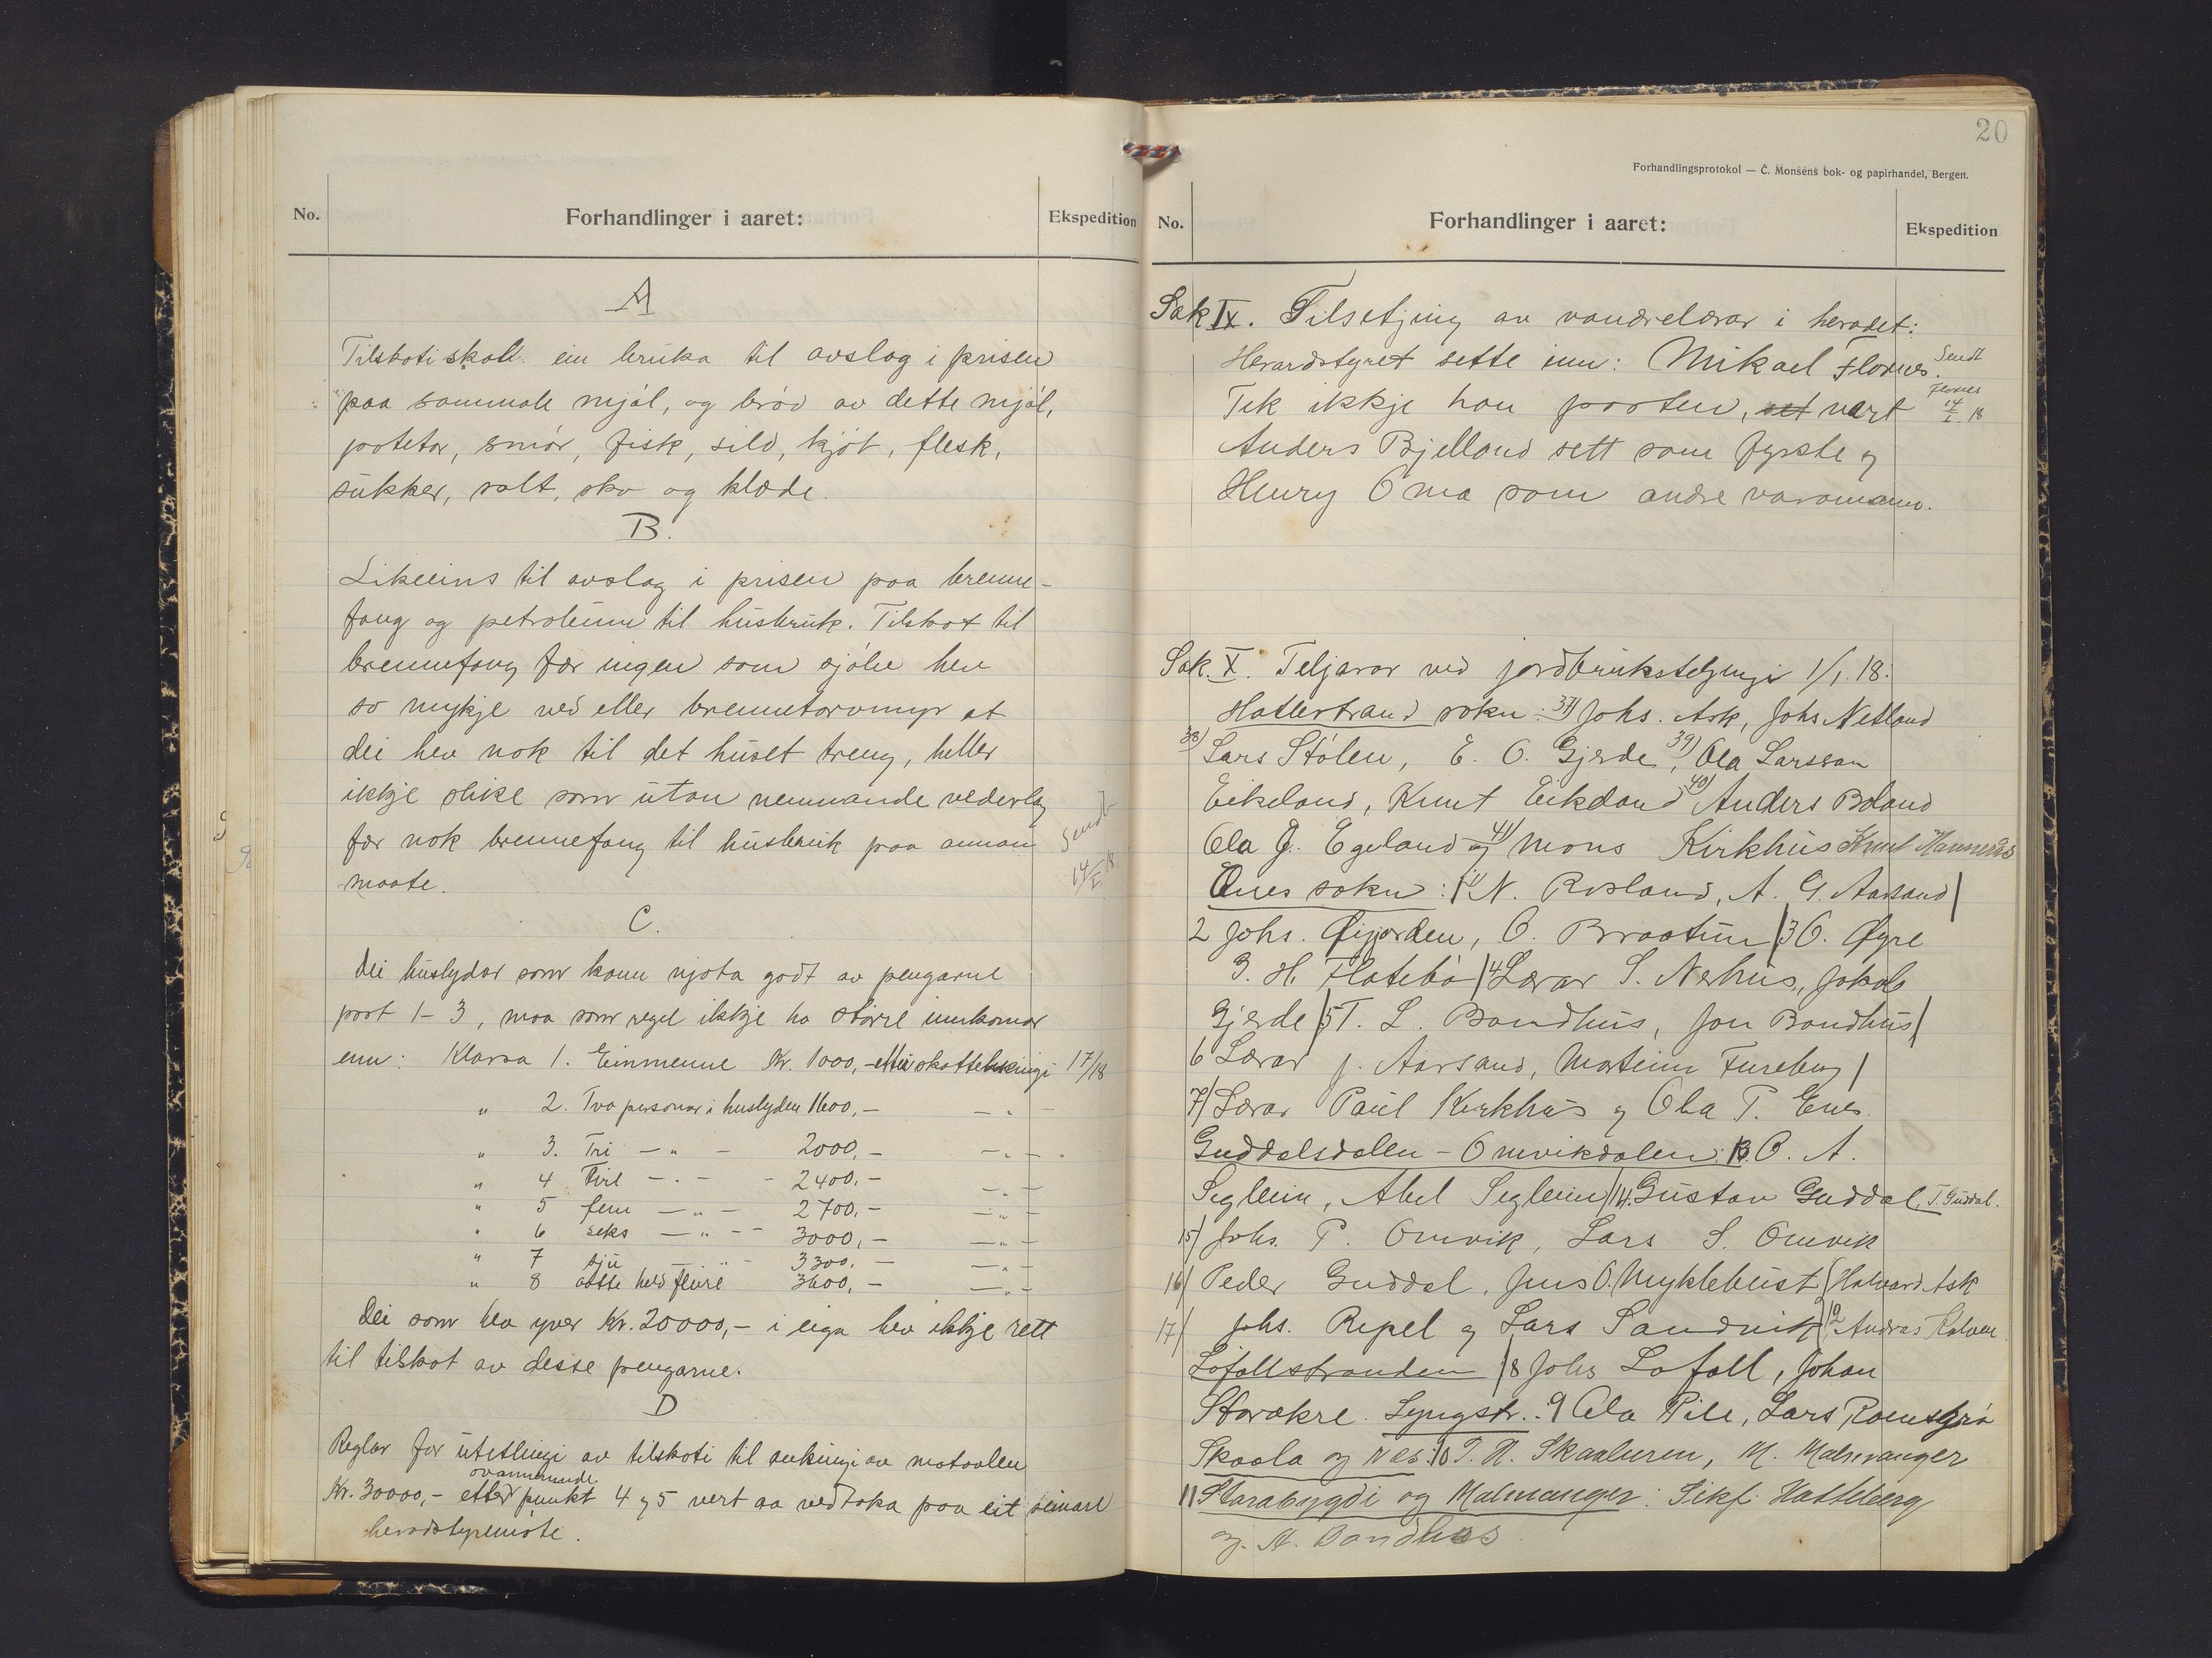 No. Forhandlinger i aaret: Ekspedition
A
Tilskoti skall ein bruka til avslag i prisen
paa sammale mjøl, og brød av dette mjøl,
potetor, smør, fisk, sild, kjøt, flesk,
sukker, salt, sko og klæde.
B.
Likeeins til avslag i prisen paa brenne-
fang og petroleum til husbruk. Tilskot til
brennefang fær ingen som sjølve hev
so mykje ved eller brennetorvmyr at
dei hev nok til det huset treng, heller
ikkje slike som utan nemnande vederlag
fær nok brennefang til husbruk paa annan
maate.
Sendt
14/I 18.
C.
Dei huslydar som kann njota godt av pengarne
post 1-3, maa som regel ikkje ha større innkomor
enn: Klassa 1. Einmenne Kr. 1000,- etter skattelikningi 17/18
" 2. Tvo personar i huslyden 1600,- — " —
" 3. Tri — " — 2000,- — " —
" 4 Fire — " — 2400,- — " —
" 5 fem — " — 2700,- — " —
" 6 seks — " — 3000,- — " —
" 7 sju — " — 3300,- — " —
" 8 aatte held fleire 3600,- — " —
Dei som hev yver Kr. 20000,- i eiga hev ikkje rett
til tilskot av desse pengarne.
D
Reglar for utetlingi av tilskoti til aukingi av matavlen
ovannemnde
Kr. 30000,- etter punkt 4 og 5 vert aa vedtaka paa eit seinare
heradstyremøte.
20
Forhandlingsprotokol — C. Monsens bok- og papirhandel, Bergen.
No. Forhandlinger i aaret: Ekspedition
Sak IX. Tilsetjing av vandrelærar i heradet:
Heradstyret sette inn: Mikael Flornes.
Sendt
Flornes
14/I 18
Tek ikkje han posten, vert
Anders Bjelland sett som fyrste og
Henry Oma som andre varamann.
Sak. X. Teljarar ved jordbruksteljingi 1/1. 18.
Hatlestrand sokn: 37) Johs. Ask, Johs Netland
38) Lars Stølen, E. O. Gjerde, 39) Ola Larsson
Eikeland, Knut Eikeland 40) Anders Boland
Ola J. Egeland og 41) Mons Kirkhus Knut
Ænes sokn: 1) N. Rosland, A. G. Aarsand |
2 Johs. Øijorden, O. Braatun | 3 O. Øyre
G. H. Flatebø | 4 Lærar S. Nerhus, Jakob
Gjerde | 5 T. L. Bondhus, Jon Bondhus |
6 Lærar J. Aarsand, Martein Fureberg |
7) Lærar Paul Kirkhus og Ola T. Enes.
Guddalsdalen - Omvikdalen: 13. O. A.
Seglem, Abel Seglem | 14. Gustav Guddal, T. Guddal.
15) Johs. P. Omvik, Lars S. Omvik
16) Peder Guddal, Jens O. Myklebust | Halvard Ask
17) Johs. Repel og Lars Sandvik | 12 Andras
Lofallstranden | 8 Johs Lofall, Johan
Storakre. Lyngstr.. 9 Ola Pile, Lars
Skaala og Nes: 10 T. H. Skaaluren, M. Malmanger
11 Starabygdi og Malmanger: Sikf. Hatteberg
og. A. Bondhus